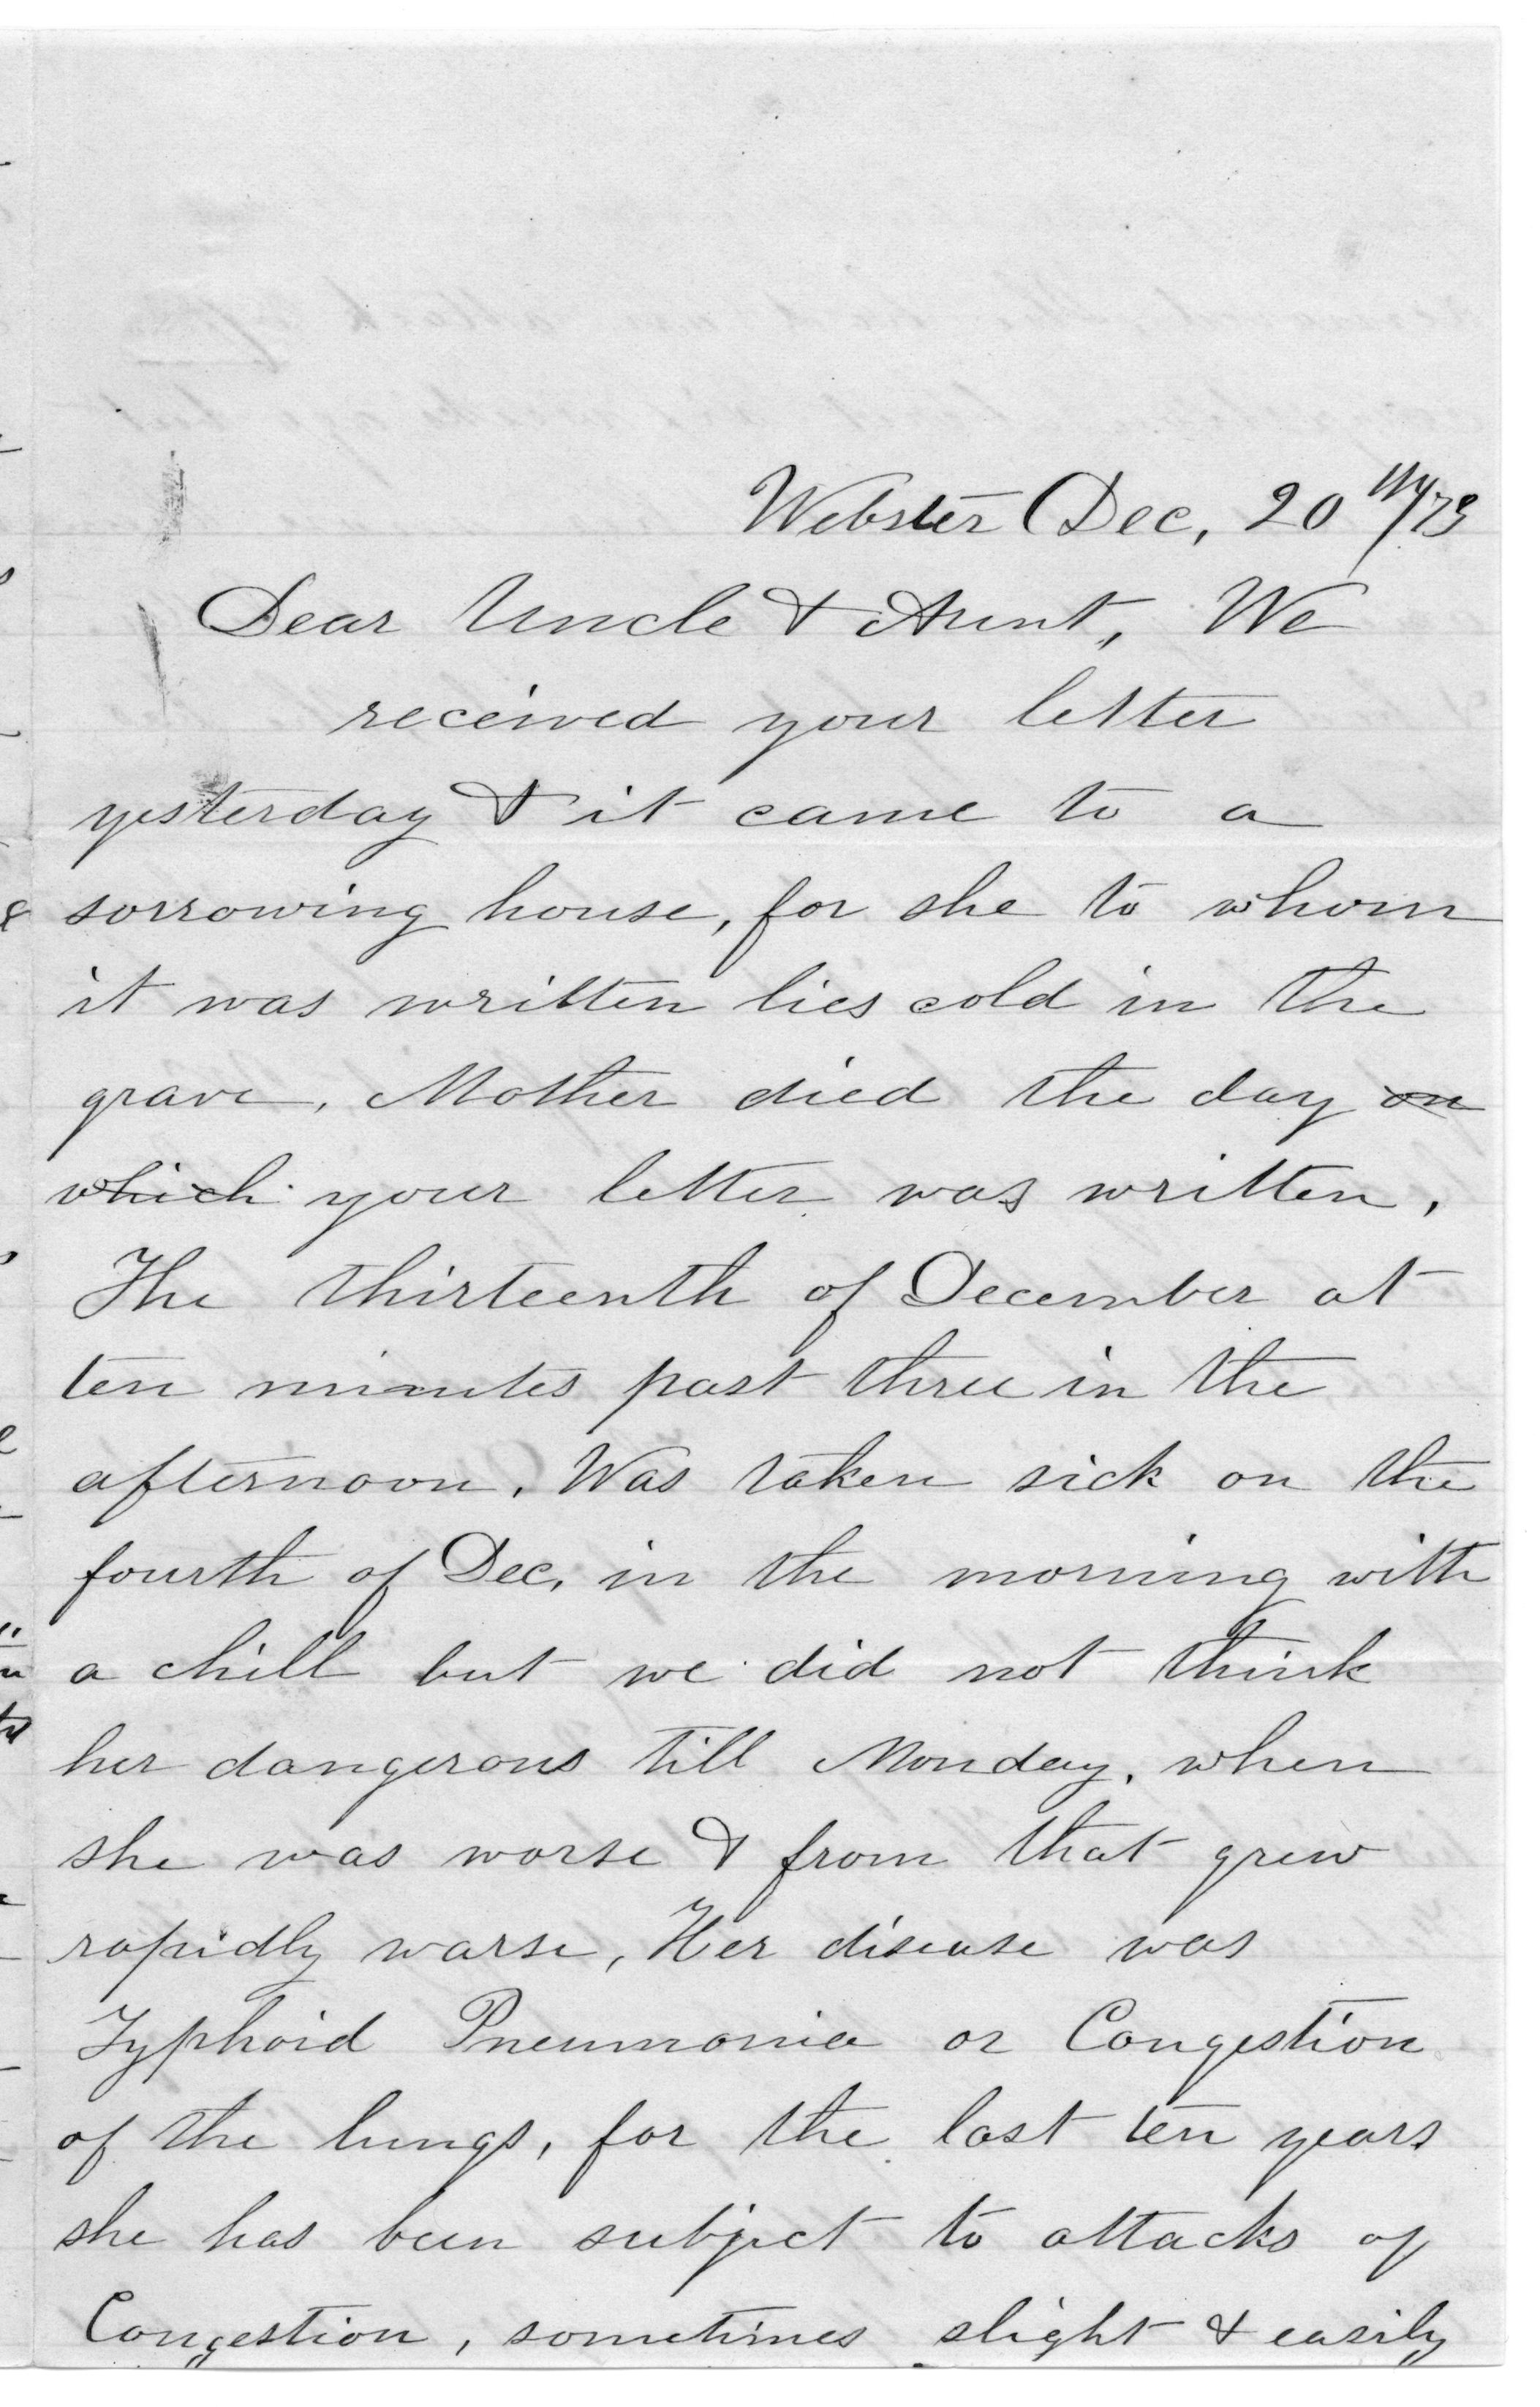 Webster Dec, 20th/73
Dear Uncle & Aunt, We
received your letter
yesterday & it came to a
sorrowing house, for she to whom
it was written lies cold in the
grave, Mother died the day on
which your letter was written,
The thirteenth of December at
ten minutes past three in the
afternoon, Was taken sick on the
fourth of Dec, in the morning with
a chill but we did not think
her dangerous till Monday, when
she was worse & from that grew
rapidly warse, Her disease was
Typhoid Pneumonia or Congestion
of the lungs, for the last ten years
she has been subject to attacks of
Congestion, sometimes slight & easily